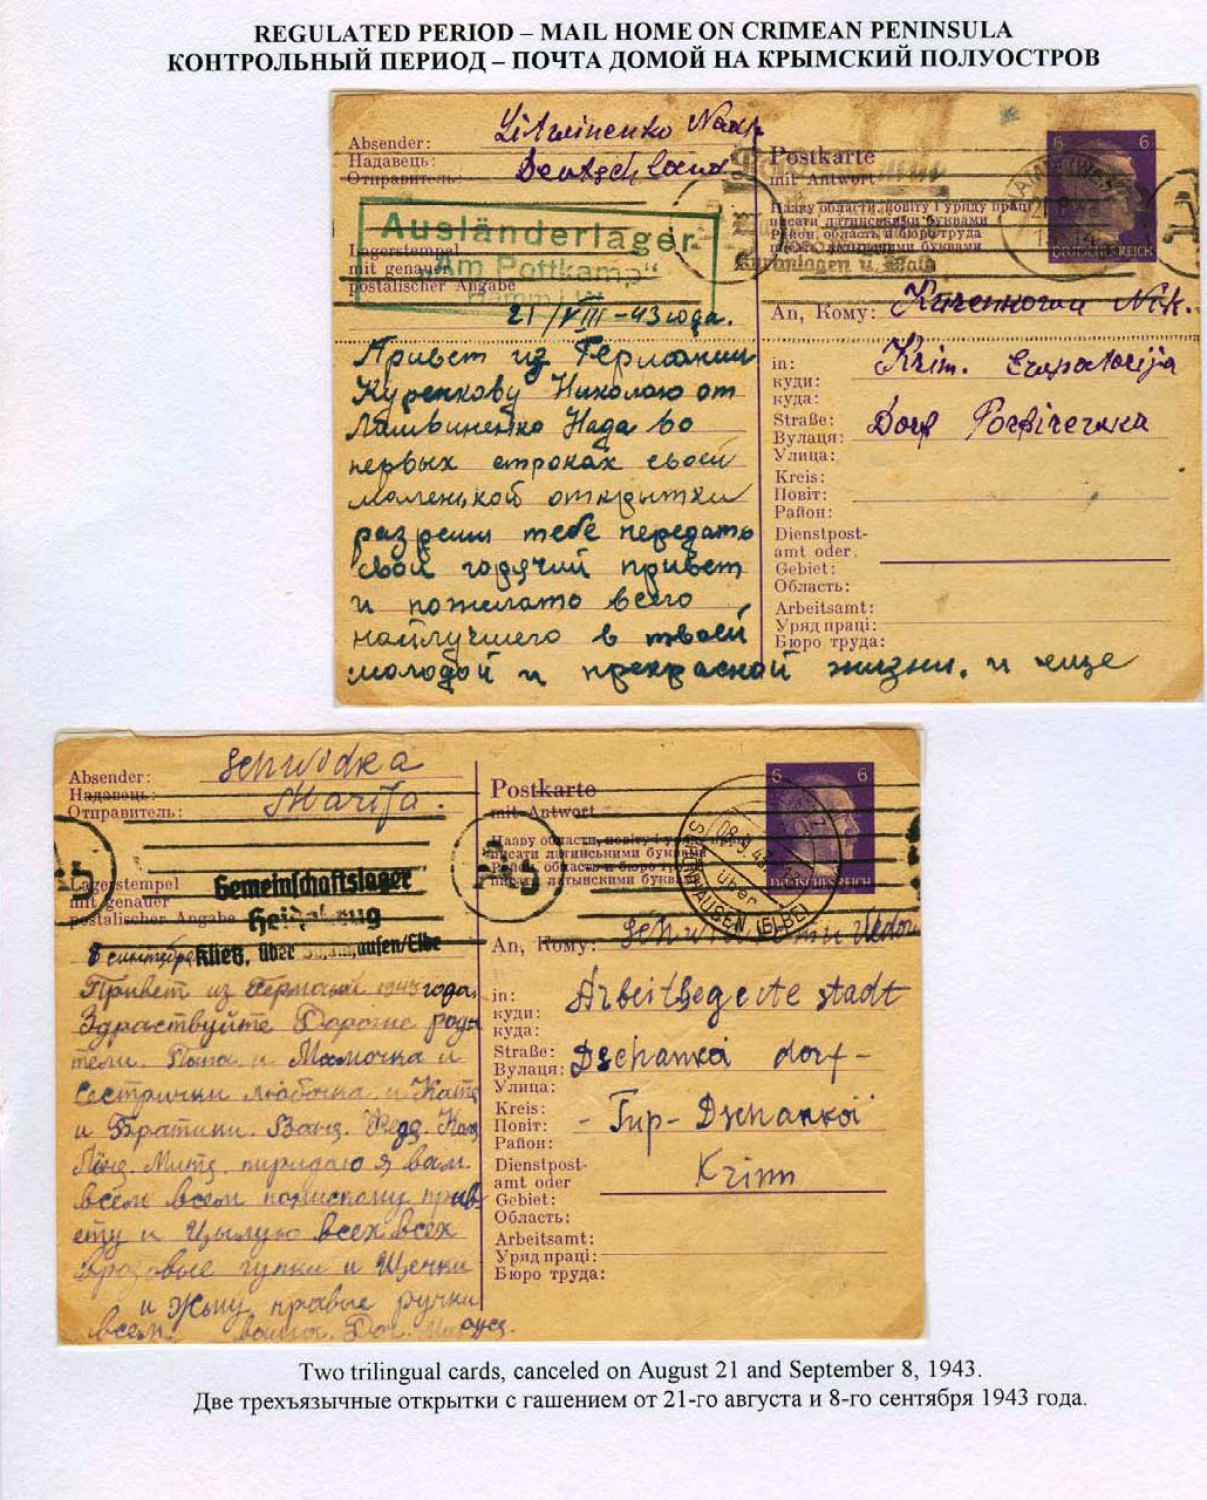 REGULATED PERIOD – MAIL HOME ON CRIMEAN PENINSULA
КОНТРОЛЬНЫЙ ПЕРИОД – ПОЧТА ДОМОЙ НА КРЫМСКИЙ ПОЛУОСТРОВ
Absender:
Надавець:
Отправитель:
Litwinenko Nadi
Deutschland
Ausländerlager
"Am Pottkamp"
Lagerstempel
mit genauer
postalischer Angabe
21/VIII-43 года.
Привет из Германии
Куренкову Николаю от
Литвиненко Нада во
первых строках своей
маленькой открытки
разреши тебе передать
свой горячий привет
и пожелать всего
наилучшего в твоей
молодой и прекрасной жизни. и еще
Postkarte
mit Antwort
Назву области, повіту і уряду праці
писати латинськими буквами
Район, область и бюро труда
писать латынскими буквами
6 6
DEUTSCHES REICH
An, Кому: Nik.
in: Krim. Ewpatorija
куди:
куда:
Straße: Dorf
Вулиця:
Улица:
Kreis:
Повіт:
Район:
Dienstpost-
amt oder
Gebiet:
Область:
Arbeitsamt:
Уряд праці:
Бюро труда:
Absender:
Надавець:
Отправитель:
Schwidka
Marija.
Lagerstempel
mit genauer
postalischer Angabe
Gemeinschaftslager
Klietz, über hausen/Elbe
8 сентября
Привет из Германий 1943 года.
Здраствуйте Дорогие роди
тели. Папа и Мамочка и
сестрички любочка и Катя
и Братики. Ваня. Федя. Коля
Лёня. Митя. пиридаю я вам
всем всем
и Цылую всех всех
в розовые гупки и Щечки
и Жму правые ручки
всем. ваша. Доч.
Postkarte
mit Antwort
Назву области, повіту і уряду праці
писати латинськими буквами
Район, область и бюро труда
писать латынскими буквами
6 6
DEUTSCHES REICH
08.9.43
über
HAUSEN (ELBE)
An, Кому:
in: stadt
куди:
куда:
Straße: Dschankoi dorf-
Вулиця:
Улица:
Kreis: - Tup- Dschankoi
Повіт:
Район:
Dienstpost-
amt oder Krim
Gebiet:
Область:
Arbeitsamt:
Уряд праці:
Бюро труда:
Two trilingual cards, canceled on August 21 and September 8, 1943.
Две трехъязычные открытки с гашением от 21-го августа и 8-го сентября 1943 года.